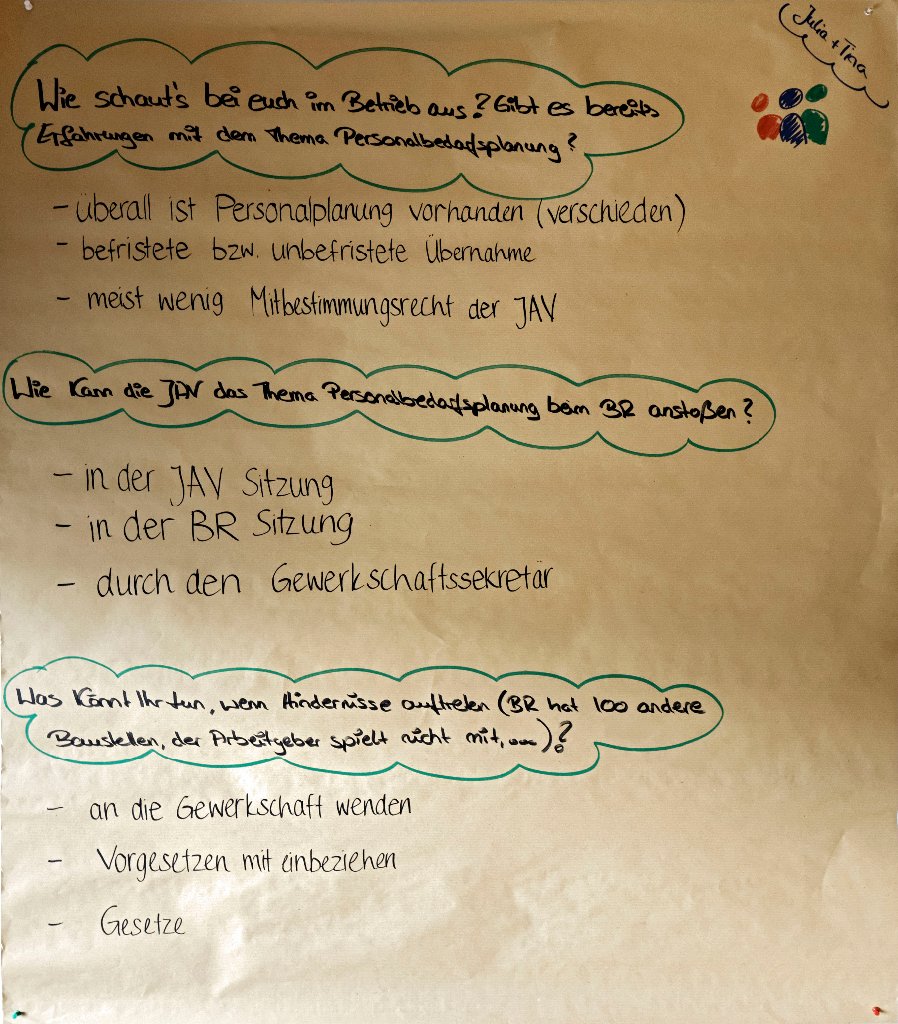 Julia + Tina
Wie schaut's bei euch im Betrieb aus? Gibt es bereits
Erfahrungen mit dem Thema Personalbedarfsplanung?
- überall ist Personalplanung vorhanden (verschieden)
- befristete bzw. unbefristete Übernahme
- meist wenig Mitbestimmungsrecht der JAV
Wie kann die JAV das Thema Personalbedarfsplanung beim BR anstoßen?
- in der JAV Sitzung
- in der BR Sitzung
- durch den Gewerkschaftssekretär
Was könnt Ihr tun, wenn Hindernisse auftreten (BR hat 100 andere
Baustellen, der Arbeitgeber spielt nicht mit, ...)?
- an die Gewerkschaft wenden
- Vorgesetzen mit einbeziehen
- Gesetze